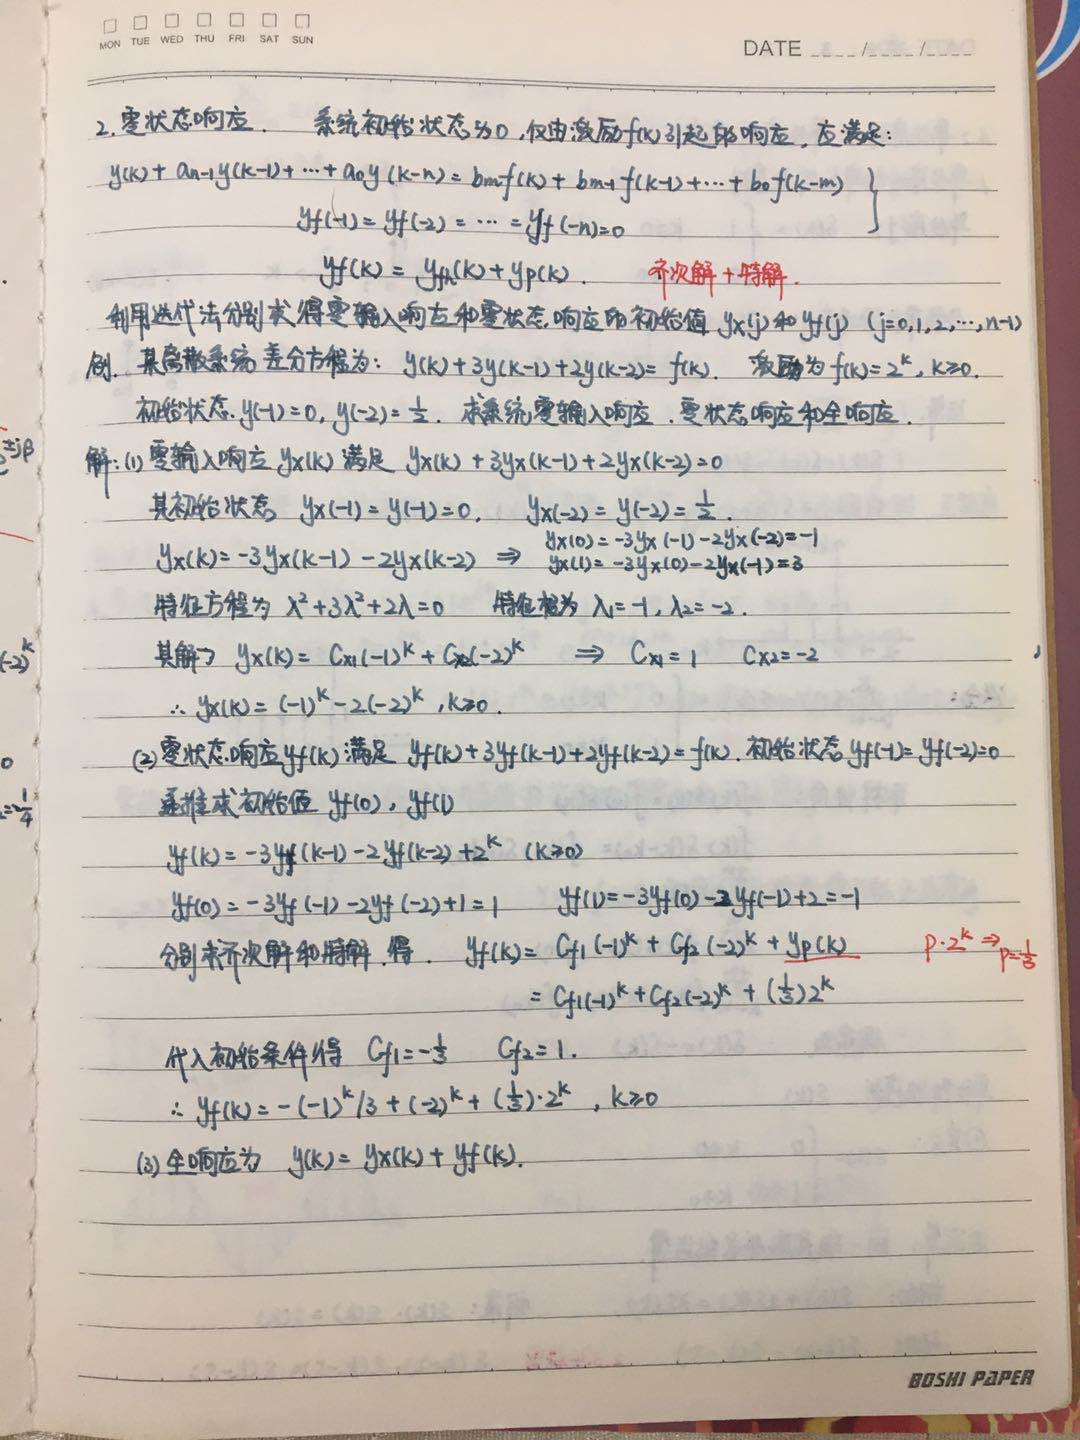 MON TUE WED THU FRI SAT SUN
DATE ____/____/____
2. 零状态响应. 系统初始状态为0,仅由激励f(k)引起的响应,应满足:
y(k)+an-1y(k-1)+…+a0y(k-n)=bmf(k)+bm-1f(k-1)+…+b0f(k-m) }
yf(-1)=yf(-2)=…=yf(-n)=0
yf(k)=yfh(k)+yp(k). 齐次解+特解.
利用迭代法分别求得零输入响应和零状态响应的初始值 yx(j)和yf(j) (j=0,1,2,…,n-1)
例. 某离散系统差分方程为: y(k)+3y(k-1)+2y(k-2)=f(k). 激励为f(k)=2^k, k≥0.
初始状态 y(-1)=0, y(-2)=1/2. 求系统零输入响应、零状态响应和全响应.
解:(1) 零输入响应 yx(k) 满足 yx(k)+3yx(k-1)+2yx(k-2)=0
其初始状态 yx(-1)=y(-1)=0, yx(-2)=y(-2)=1/2.
yx(k)=-3yx(k-1)-2yx(k-2) ⇒ yx(0)=-3yx(-1)-2yx(-2)=-1
yx(1)=-3yx(0)-2yx(-1)=3
特征方程为 λ²+3λ²+2λ=0 特征根为 λ1=-1, λ2=-2.
其解为 yx(k)=Cx1(-1)^k+Cx2(-2)^k ⇒ Cx1=1 Cx2=-2
∴ yx(k)=(-1)^k-2(-2)^k, k≥0.
(2) 零状态响应yf(k)满足 yf(k)+3yf(k-1)+2yf(k-2)=f(k). 初始状态 yf(-1)=yf(-2)=0
递推求初始值 yf(0), yf(1)
yf(k)=-3yf(k-1)-2yf(k-2)+2^k (k≥0)
yf(0)=-3yf(-1)-2yf(-2)+1=1 yf(1)=-3yf(0)-2yf(-1)+2=-1
分别求齐次解和特解,得. yf(k)=Cf1(-1)^k+Cf2(-2)^k+yp(k) p·2^k ⇒ p=1/3
=Cf1(-1)^k+Cf2(-2)^k+(1/3)2^k
代入初始条件得 Cf1=-1/3 Cf2=1.
∴ yf(k)=-(-1)^k/3+(-2)^k+(1/3)·2^k, k≥0
(3) 全响应为 y(k)=yx(k)+yf(k).
BOSHI PAPER